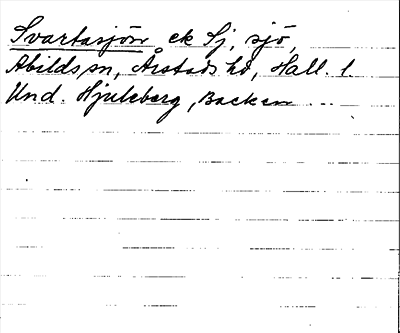 Svartasjön ek Sj, sjö,
Abilds sn, Årstads hd, Hall. l.
Und. Hjuleberg, Backen ...